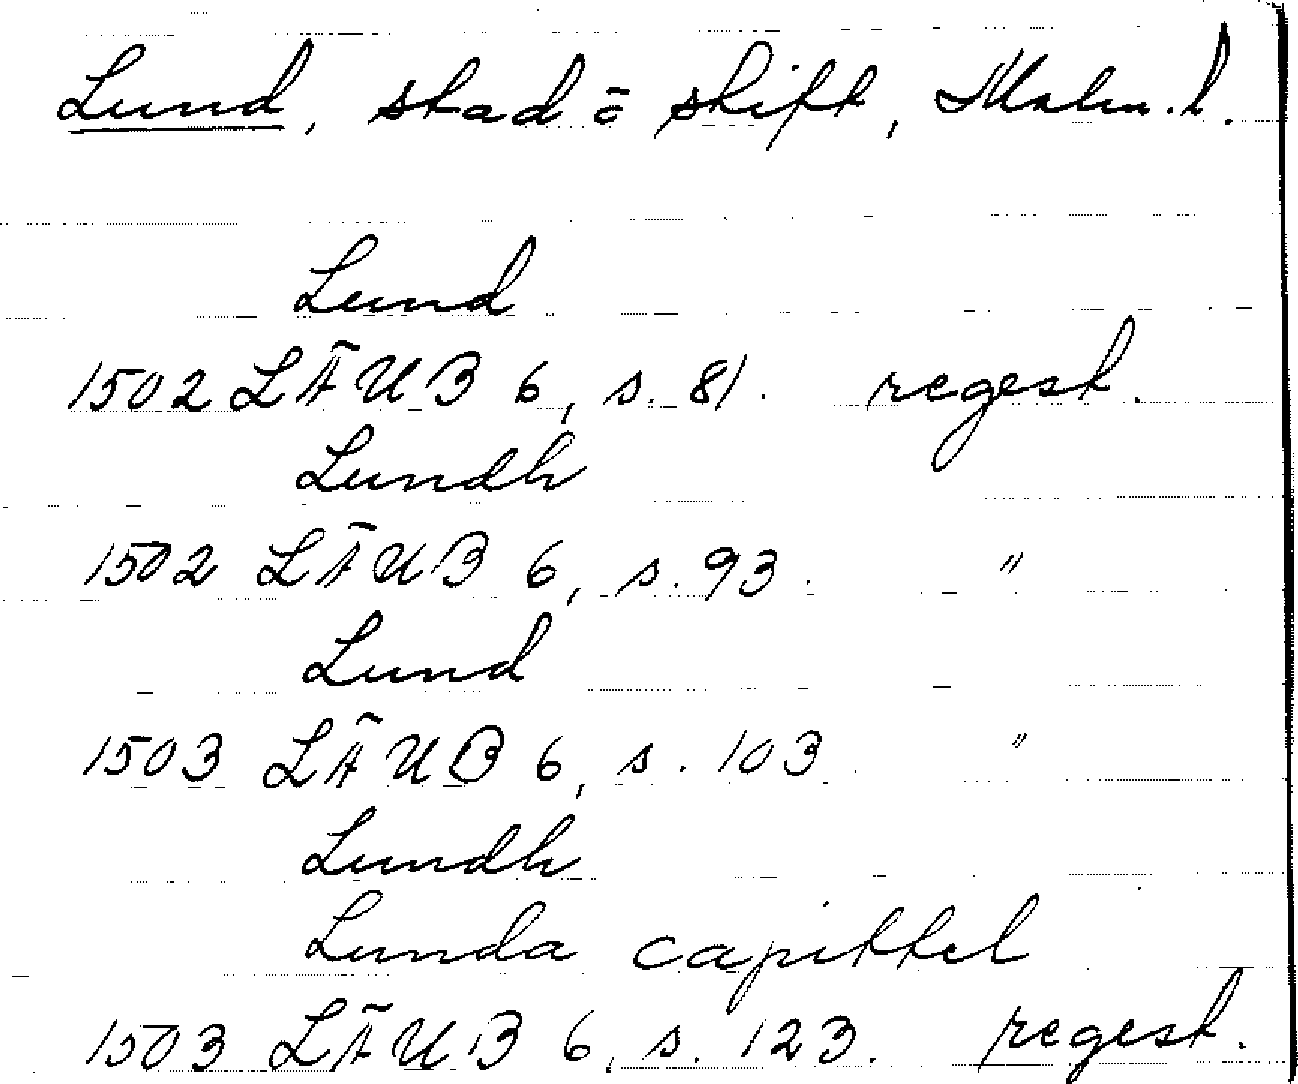 Lund, stad o stift, Malm. l.
Lund
1502 LÄUB 6, s. 81. regest.
Lundh
1502 LÄUB 6, s. 93. "
Lund
1503 LÄUB 6, s. 103. "
Lundh
Lunda capittel
1503 LÄUB 6, s. 123. regest.